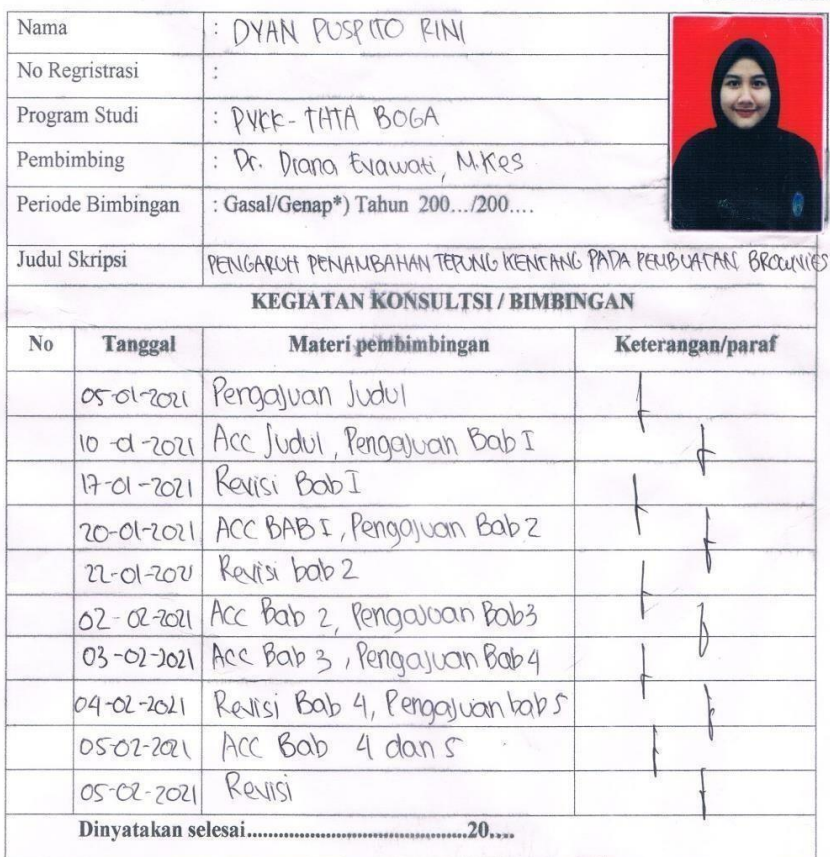 Nama : DYAN PUSPITO RINI
No Regristrasi :
Program Studi : PVKK - TATA BOGA
Pembimbing : Dr. Diana Evawati, M.Kes
Periode Bimbingan : Gasal/Genap*) Tahun 200.../200....
Judul Skripsi PENGARUH PENAMBAHAN TEPUNG KENTANG PADA PEMBUATAN BROWNIES
KEGIATAN KONSULTSI / BIMBINGAN
No Tanggal Materi pembimbingan Keterangan/paraf
05-01-2021 Pengajuan Judul
10-01-2021 Acc Judul, Pengajuan Bab I
17-01-2021 Revisi Bab I
20-01-2021 ACC BAB I, Pengajuan Bab 2
22-01-2021 Revisi bab 2
02-02-2021 Acc Bab 2, Pengajuan Bab 3
03-02-2021 Acc Bab 3, Pengajuan Bab 4
04-02-2021 Revisi Bab 4, Pengajuan bab 5
05-02-2021 Acc Bab 4 dan 5
05-02-2021 Revisi
Dinyatakan selesai..........................................20....